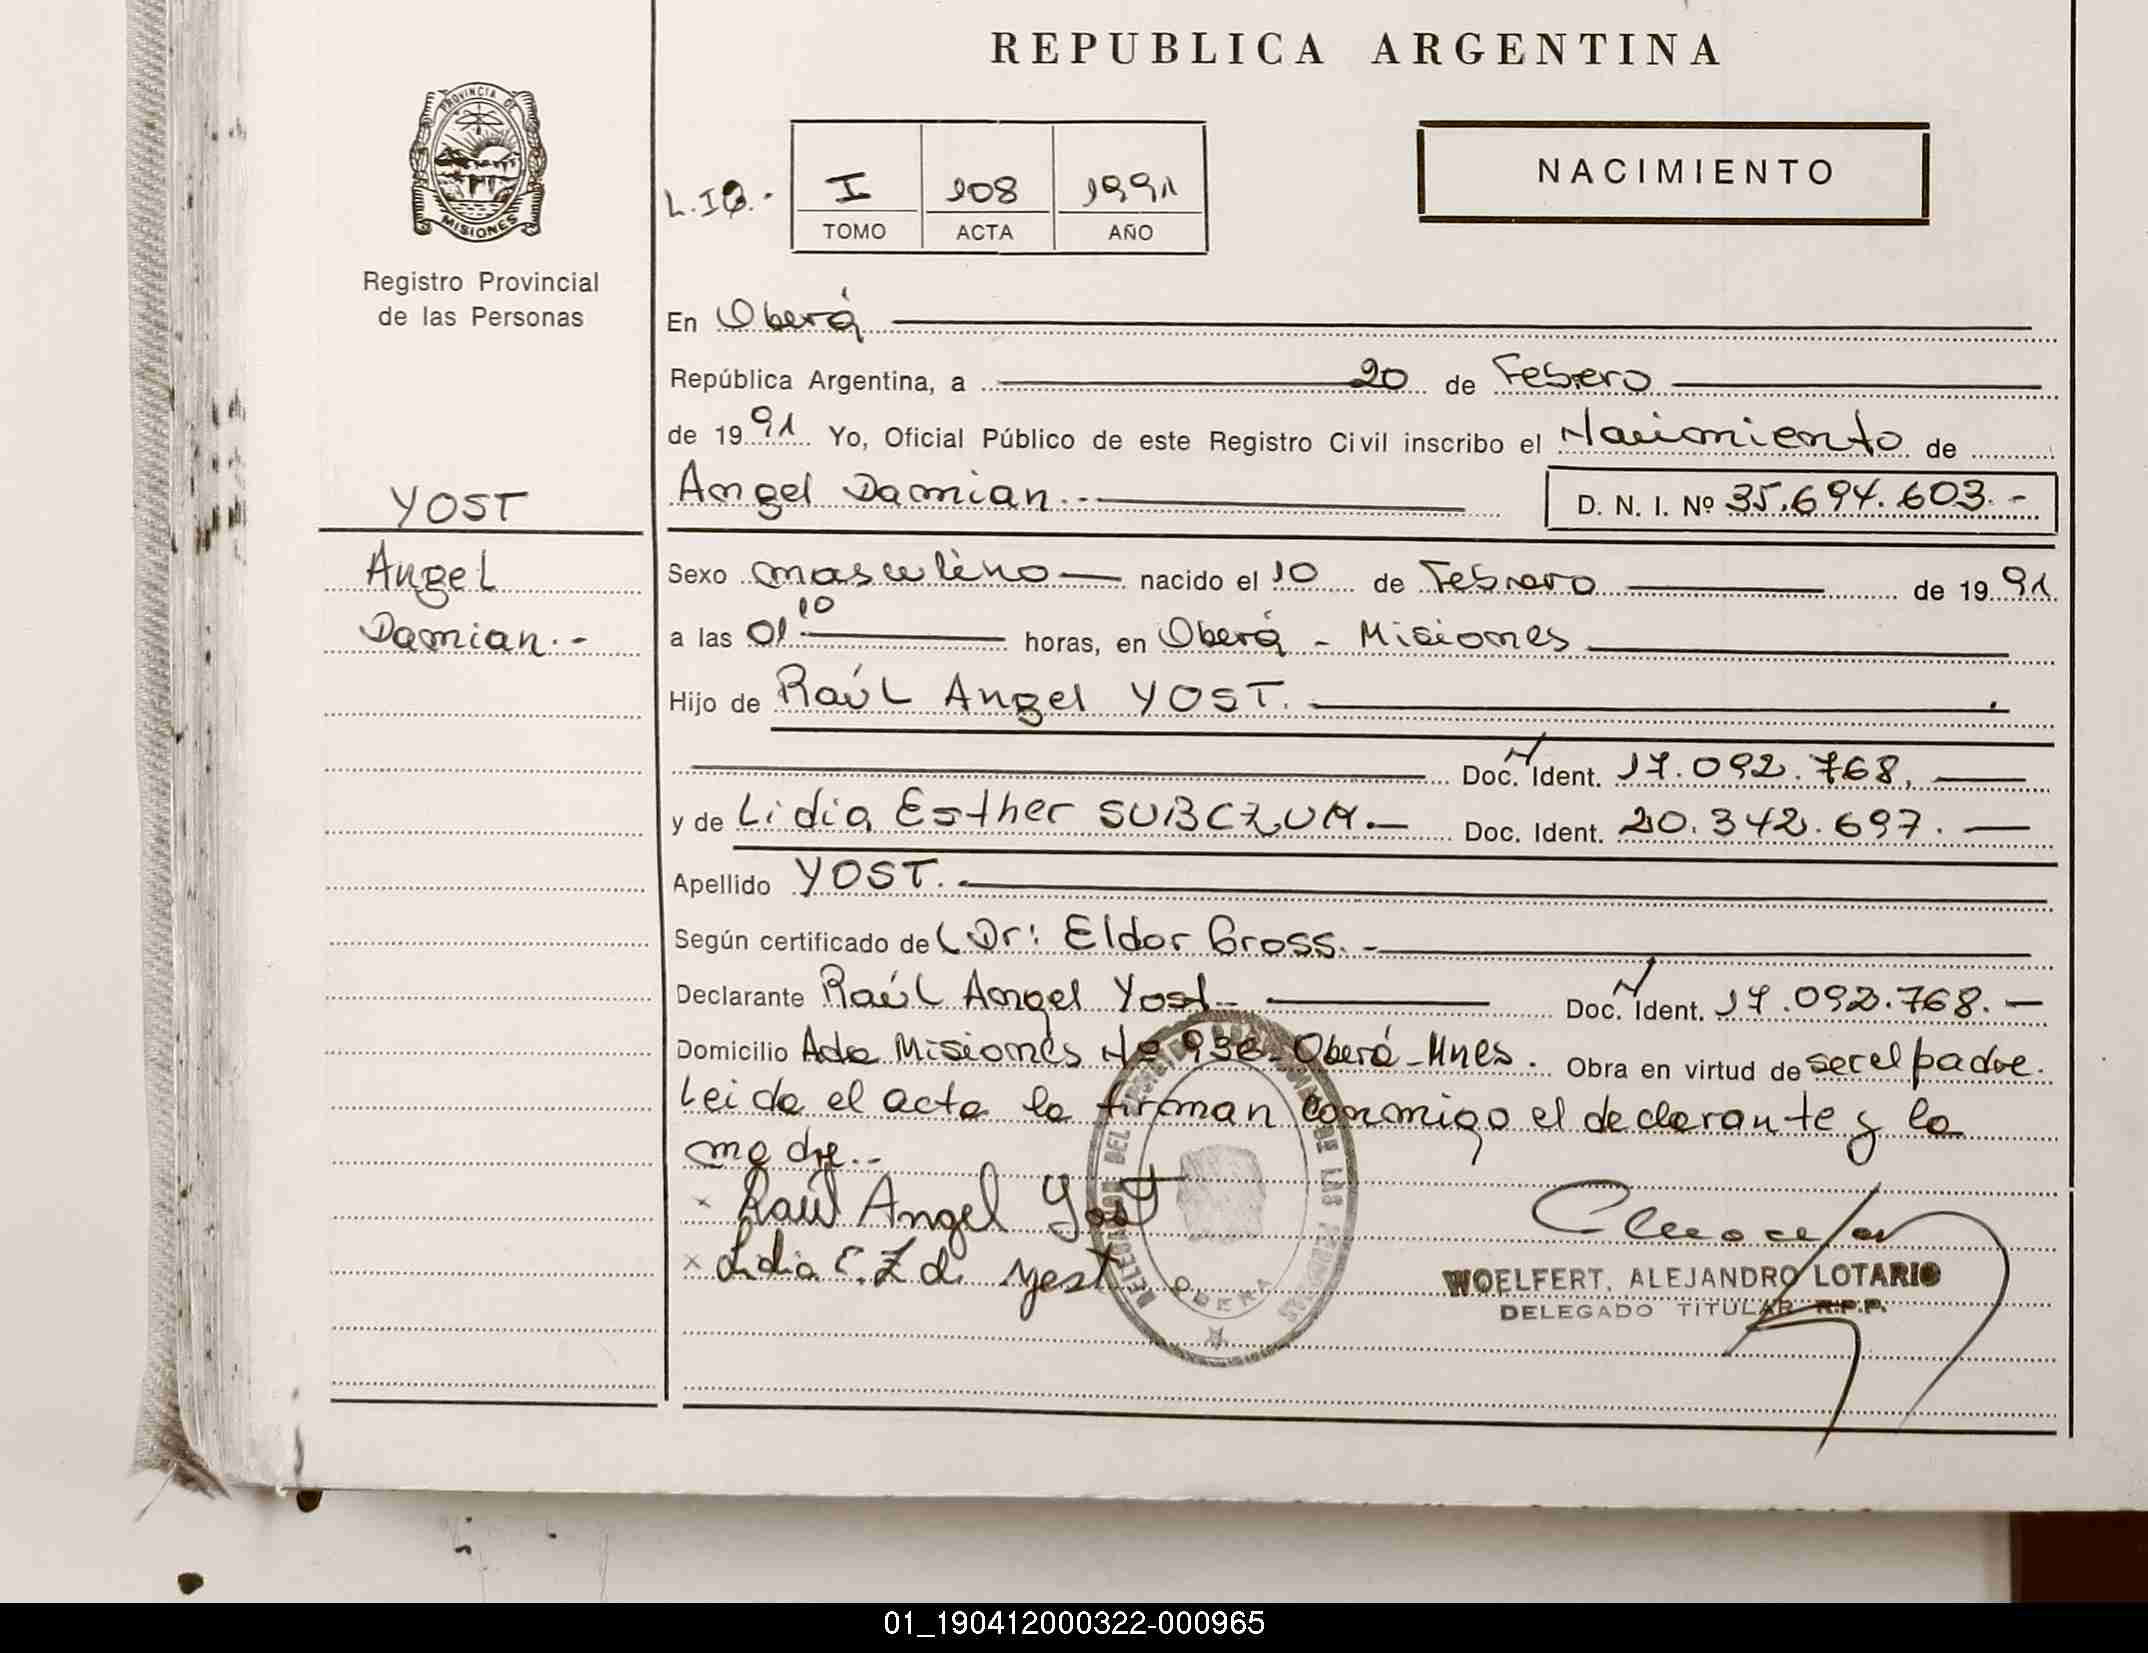 REPUBLICA ARGENTINA
PROVINCIA DE
MISIONES
Registro Provincial
de las Personas
NACIMIENTO
I 108 1991
TOMO ACTA AÑO
En Oberá
República Argentina, a 20 de Febrero
de 1991 Yo, Oficial Público de este Registro Civil inscribo el Nacimiento de
Angel Damian.-- D. N. I. Nº 35.694.603.-
YOST
Angel
Damian.-
Sexo masculino nacido el 10 de Febrero de 1991
a las 01 10 horas, en Oberá - Misiones
Hijo de Raúl Angel YOST.
Doc. Ident. 17.092.768,
y de Lidia Esther Doc. Ident. 20.342.697.
Apellido YOST.
Según certificado de Dr: Eldor Gross.-
Declarante Raúl Angel Yost Doc. Ident. 17.092.768.
Domicilio Misiones Nº Oberá-Mnes. Obra en virtud de ser el padre.
Leida el acta la firman conmigo el declarante y la
madre.-
x Raúl Angel Yost
x Lidia E. Z d. Yost
OBERA
WOELFERT, ALEJANDRO LOTARIO
DELEGADO TITULAR R.P.P.
01_190412000322-000965